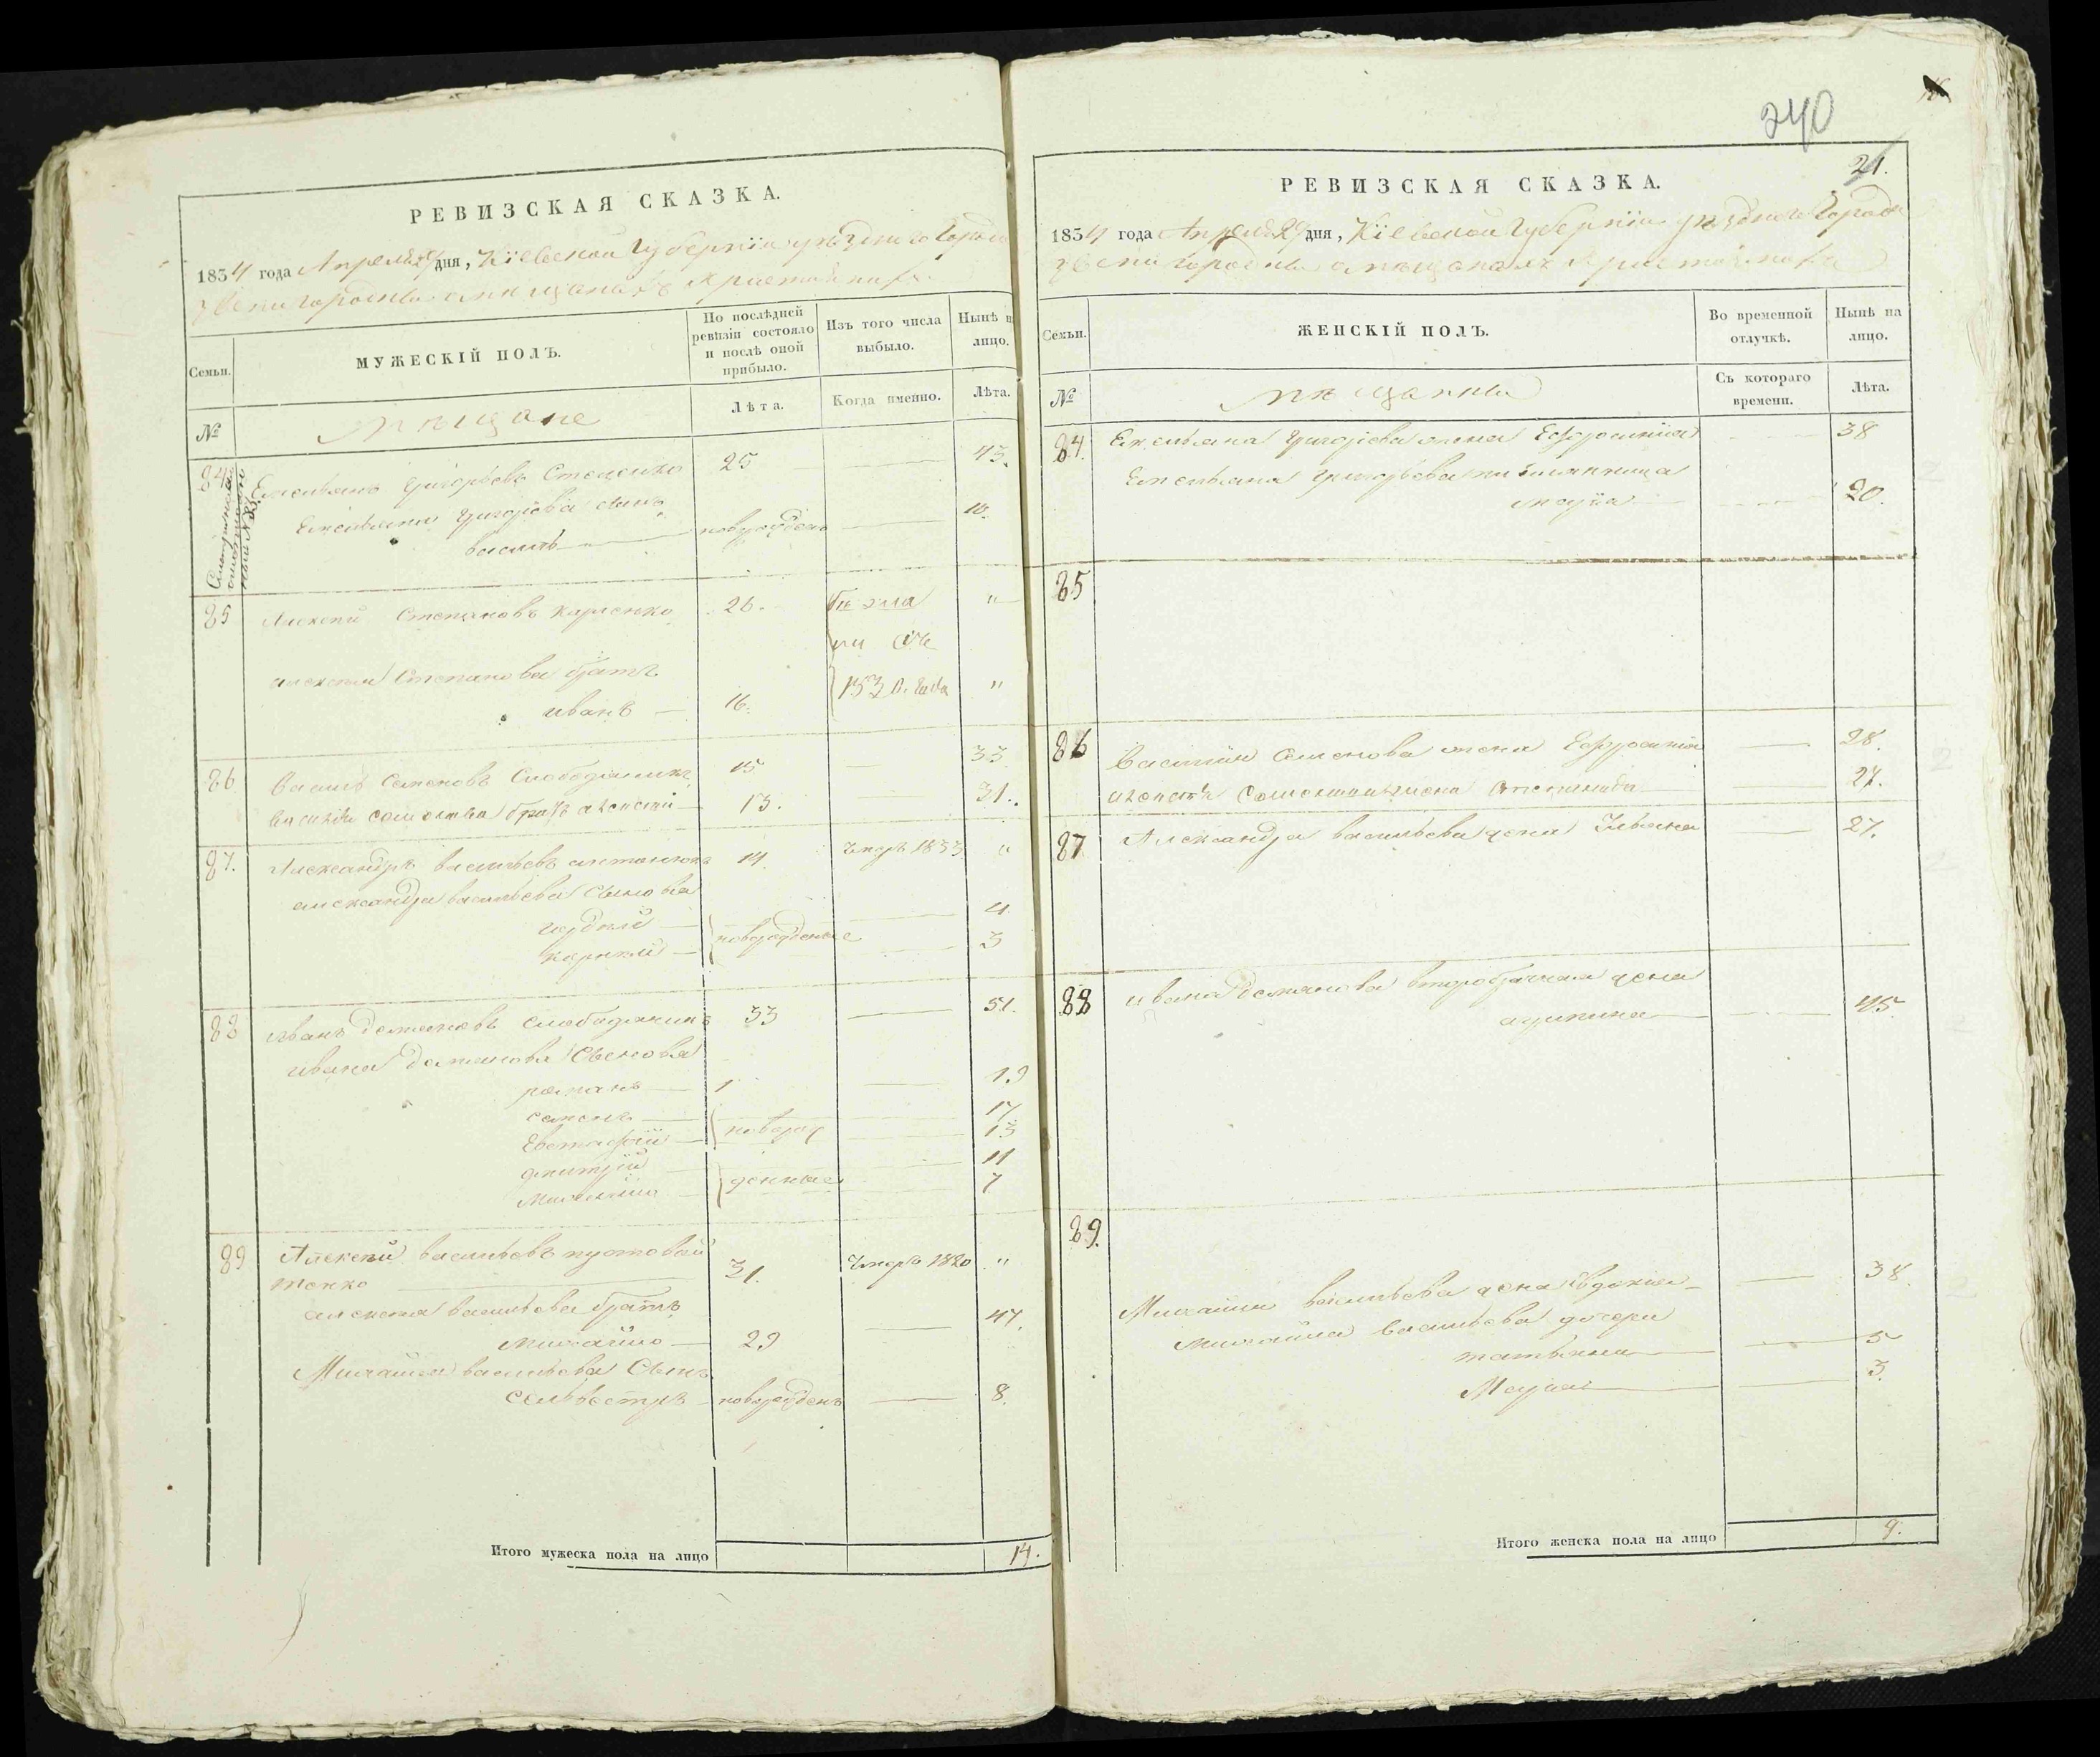 РЕВИЗСКАЯ СКАЗКА.
1834 года Апреля 29 дня, Кіевской Губерніи уѣзднаго Города
Звенигородки о мѣщанахъ Христіянахъ
Семьи.
МУЖЕСКІЙ ПОЛЪ.
По послѣдней ревизіи состояло и послѣ оной прибыло.
Изъ того числа выбыло.
Нынѣ н лицо.
№
мѣщане
Лѣта.
Когда именно.
Лѣта.
84
Емельянъ Григорьевъ Стеценко 25 43.
Емельяна Григорьева сынъ
василь новорожденъ 10.
85 Алексѣй Степановъ карпенко 26. бѣжал "
алексѣя Степанова братъ
иванъ 16. года "
86 Василь Семеновъ Слободяникъ 15 33
василія семенова братъ алексѣй 13. 31.
87. Александръ васильевъ антонюкъ 14 Умеръ 1833 "
александра васильева сыновья
4
карпъ новорожденые 3
88 Иванъ Демяновъ слободяникъ 33 51.
ивана Демянова сыновья
романъ 1 19
семенъ 17
Евстафій новорож 13
дмитрій 11
михайло денные 7
89 Алексѣй васильевъ пустовой
тенко 31. Умеръ 1820 "
алексѣя васильева братъ
михайло 29 47.
Михайла васильева сынъ
сельвестръ новорожденъ 8.
Итого мужеска пола на лицо 14.
240
21.
РЕВИЗСКАЯ СКАЗКА.
1834 года Апреля 29 дня, Кіевской Губерніи уѣзднаго Города
Звенигородки о мѣщанахъ Христіянахъ
Семьи.
ЖЕНСКІЙ ПОЛЪ.
Во временной отлучкѣ.
Нынѣ на лицо.
№
мѣщанки
Съ котораго времени.
Лѣта.
84. Емельяна Григорьева жена Ефросинія 38
Емельяна Григорьева
марія 20.
85
86 Василія Семенова жена Ефросинія 28.
алексѣя Семенова жена Степанида 27.
87 Александра васильева жена Ульяна 27.
88 ивана Демянова второбрачная жена
45.
89.
Михайла васильева жена Евдокия 38.
михайла васильева дочери
татьяна 5
Марія 3.
Итого женска пола на лицо 9.